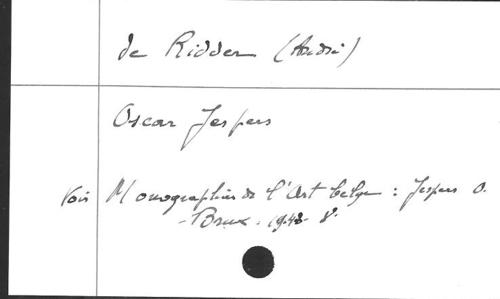 de Ridder (André)
Oscar Jespers
Voir Monographies de l'Art belge : Jespers O.
- Brux. 1948. 8°.